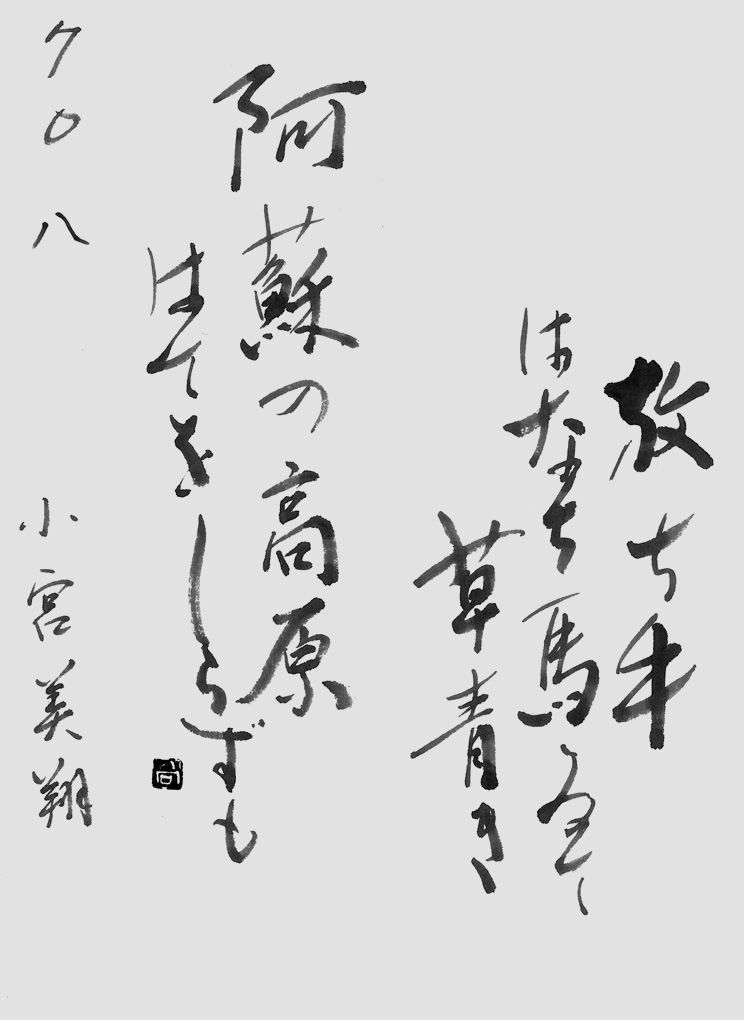 放ち牛
はなち馬
草青き
阿蘇の高原
はてをしらずも
小宮美翔